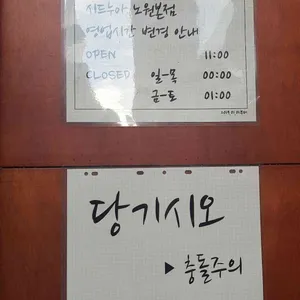 서프누아 노원본점
영업시간 변경 안내
OPEN 11:00
CLOSED 일-목 00:00
금-토 01:00
당기시오
▶ 충돌주의